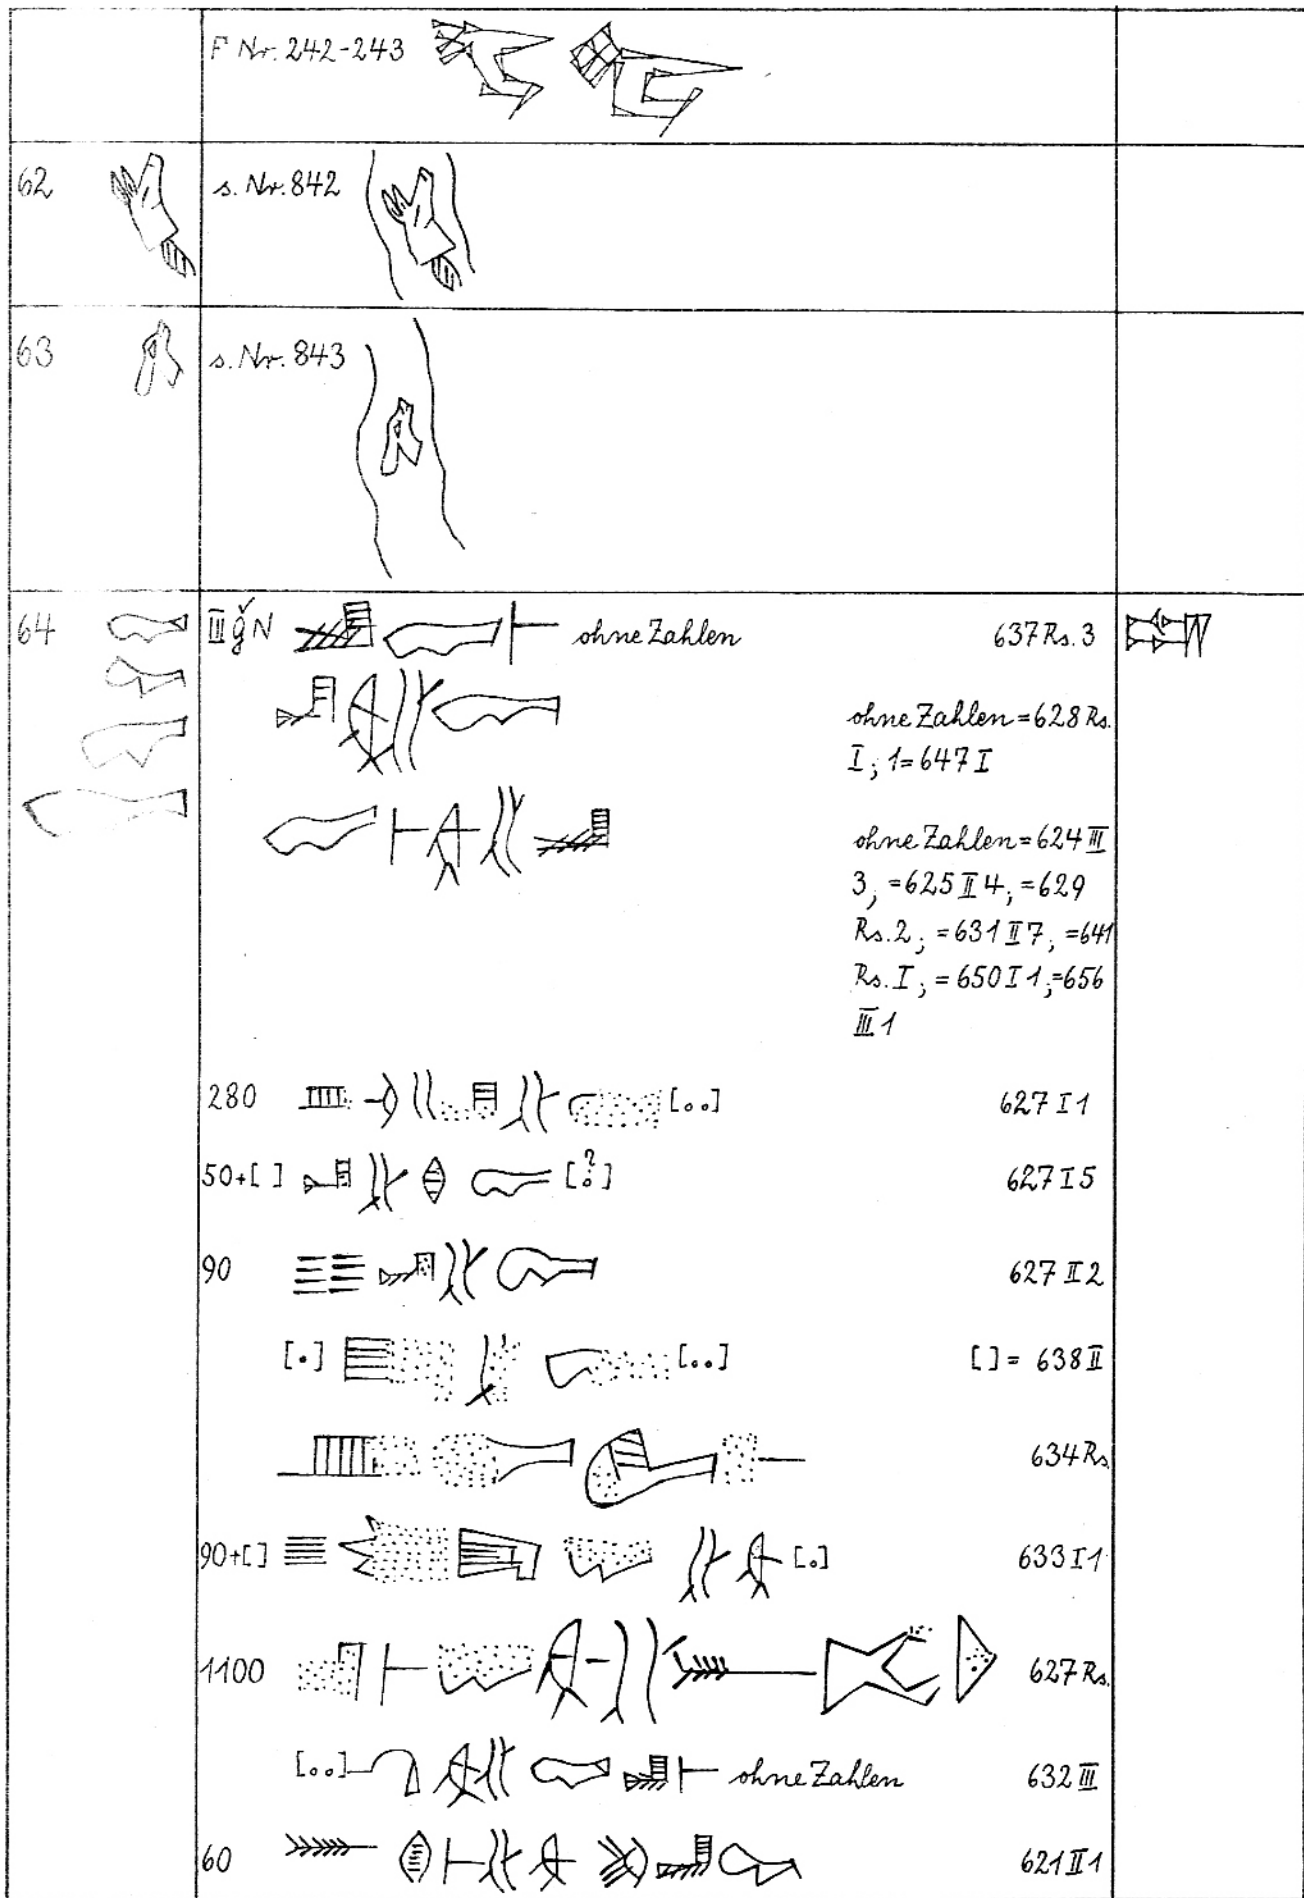 F Nr. 242-243
62 s. Nr. 842
63 s. Nr. 843
64 III ğ N ohne Zahlen 637 Rs. 3
ohne Zahlen = 628 Rs.
I; 1 = 647 I
ohne Zahlen = 624 III
3; = 625 II 4; = 629
Rs. 2; = 631 II 7; = 641
Rs. I; = 650 I 1; = 656
III 1
280 [..] 627 I 1
50+[ ] [?] 627 I 5
90 627 II 2
[.] [..] [ ] = 638 II
634 Rs.
90+[ ] [.] 633 I 1
1100 627 Rs.
[..] ohne Zahlen 632 III
60 621 II 1